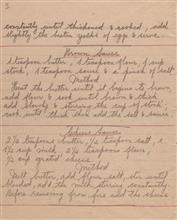 constantly until thickened & cooked, add
slightly the beaten yolks of egg & serve.
Brown Sauce
1 teaspoon butter, 1 teaspoon flour, 1 cup
stock, 1 teaspoon sauce & a pinch of salt
Method
Heat the butter until it begins to brown
add flour & cook until brown & thick
add slowly & stirring the cup of stock,
cook until thick add the salt & sauce
Cheese Sauce
2 1/2 teaspoons butter, 1/2 teaspoon salt, 1
1/2 cup milk 2 1/2 teaspoons flour,
1/2 cup grated cheese
Method
Melt butter, add flour, salt, stir until
blended, add the milk stirring constantly
before removing from fire add the cheese